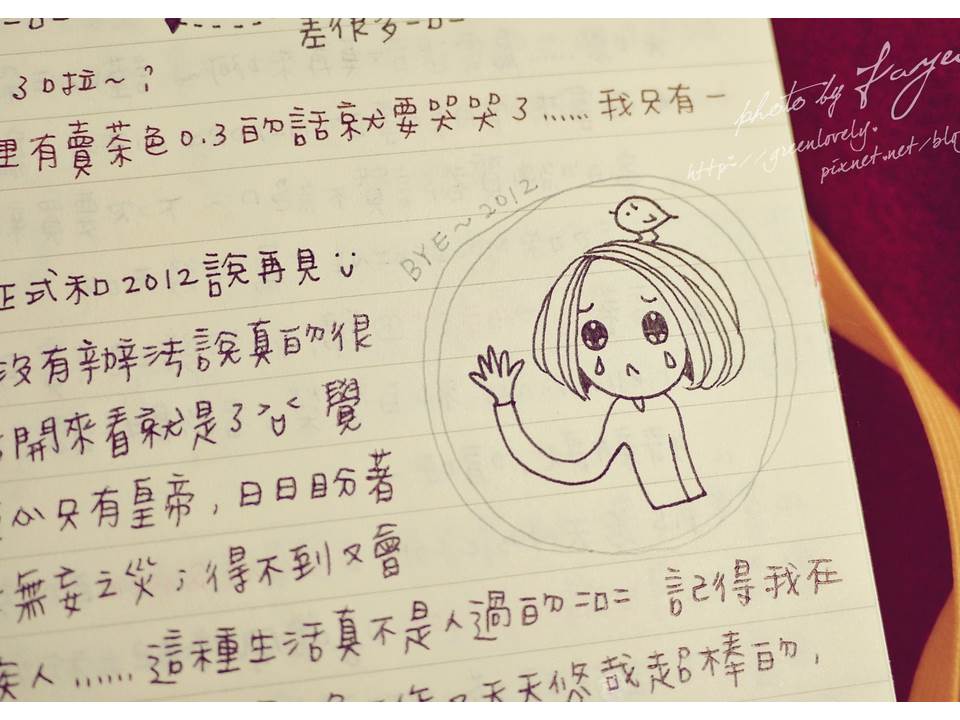 差很多=口=
3口拉～?
里有賣茶色0.3的話就要哭哭3......我只有一
正式和2012說再見
沒有辦法說真的很
開來看就是3 覺
只有皇帝，日日盼著
無妄之災；得不到又會
疾人......這種生活真不是人過的=口= 記得我在
天天悠哉超棒的，
BYE~2012
photo by Faye
http://greenlovely.
pixnet.net/blog